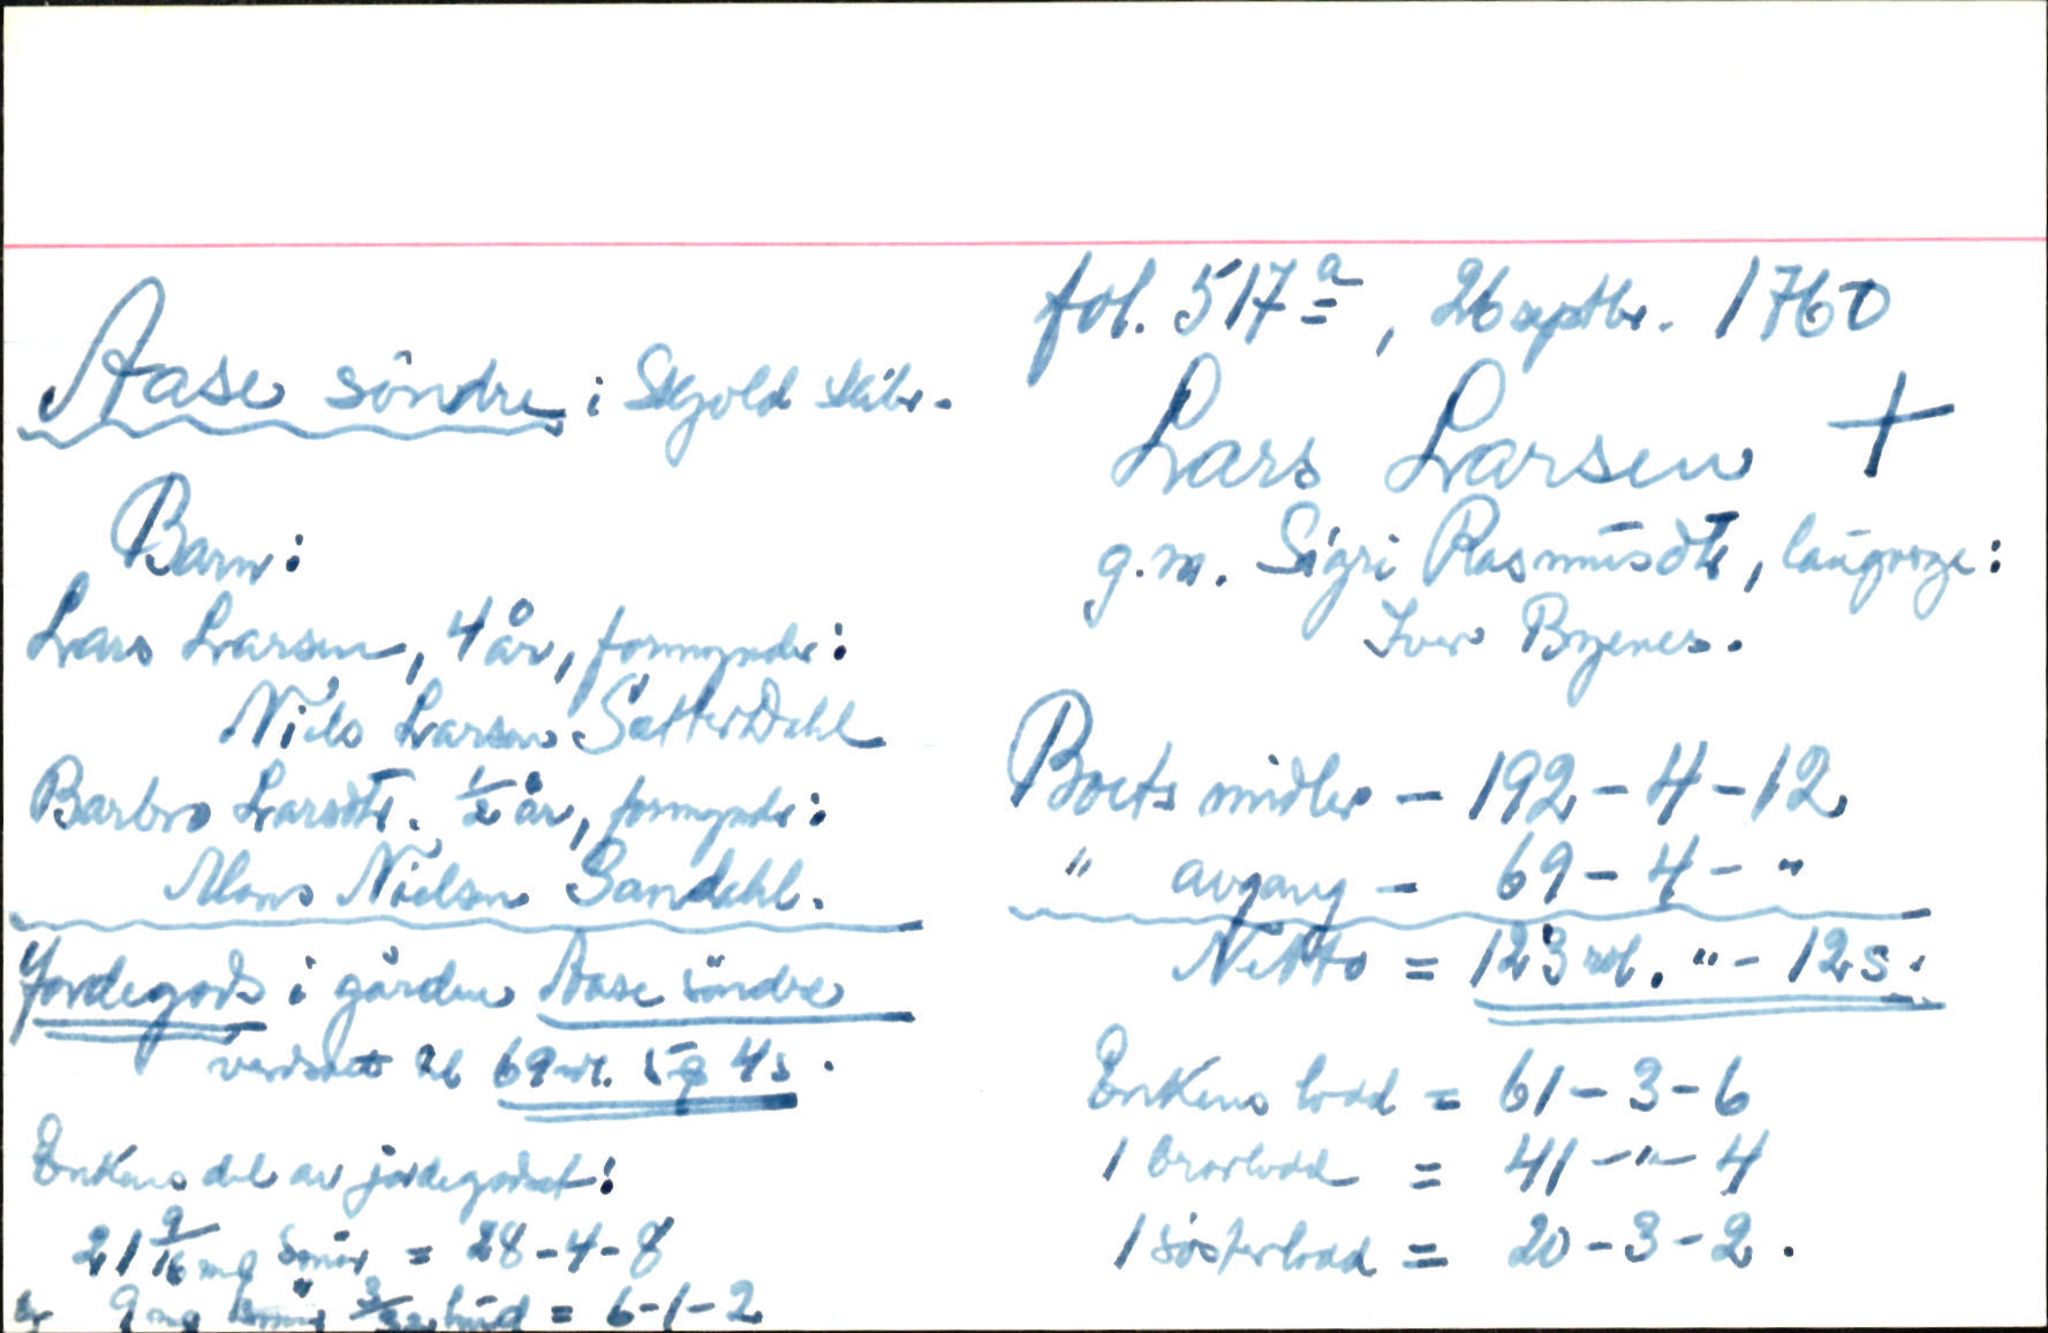 fol. 517 a, 26 septbr. 1760
Aase söndre i Skjold skibr.
Lars Larsen +
g.m. Sigri Rasmusdtr, laugverge:
Iver Byenes.
Barn:
Lars Larsen, 4 år, formynder:
Niels Larsen SætterDahl
Barbro Larsdtr. 1/2 år, formynder:
Mons Nielsen Sandahl.
Boets midler - 192-4-12
" avgang - 69-4-"
Netto = 123 rd. "- 12 s.
Jordegods i gården Aase söndre
verdsatt til 69 rd. 5 4 s.
Enkens lodd = 61-3-6
1 brorlodd = 41-"-4
1 sösterlodd = 20-3-2.
Enkens del av jordegodset:
21 9/16 mg smör = 28-4-8
9 mg smör 3/32 hud = 6-1-2